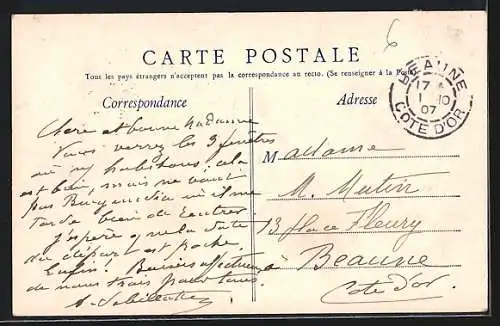 6
CARTE POSTALE
Tous les pays étrangers n'acceptent pas la correspondance au recto. (Se renseigner à la Poste
BEAUNE
17
1 10
07
COTE D'OR
Correspondance
Adresse
Chère et bonne Madame
Vous verrez les 3 fenêtres
où ns habitons, cela
est bien, mais ne vaut
pas
tarde bien de
j'espère que la date
du départ est proche.
Enfin. Baisers affectueux
de nous trois pour tous.
Madame
M. Mutin
13 place Fleury
Beaune
Côte d'or.